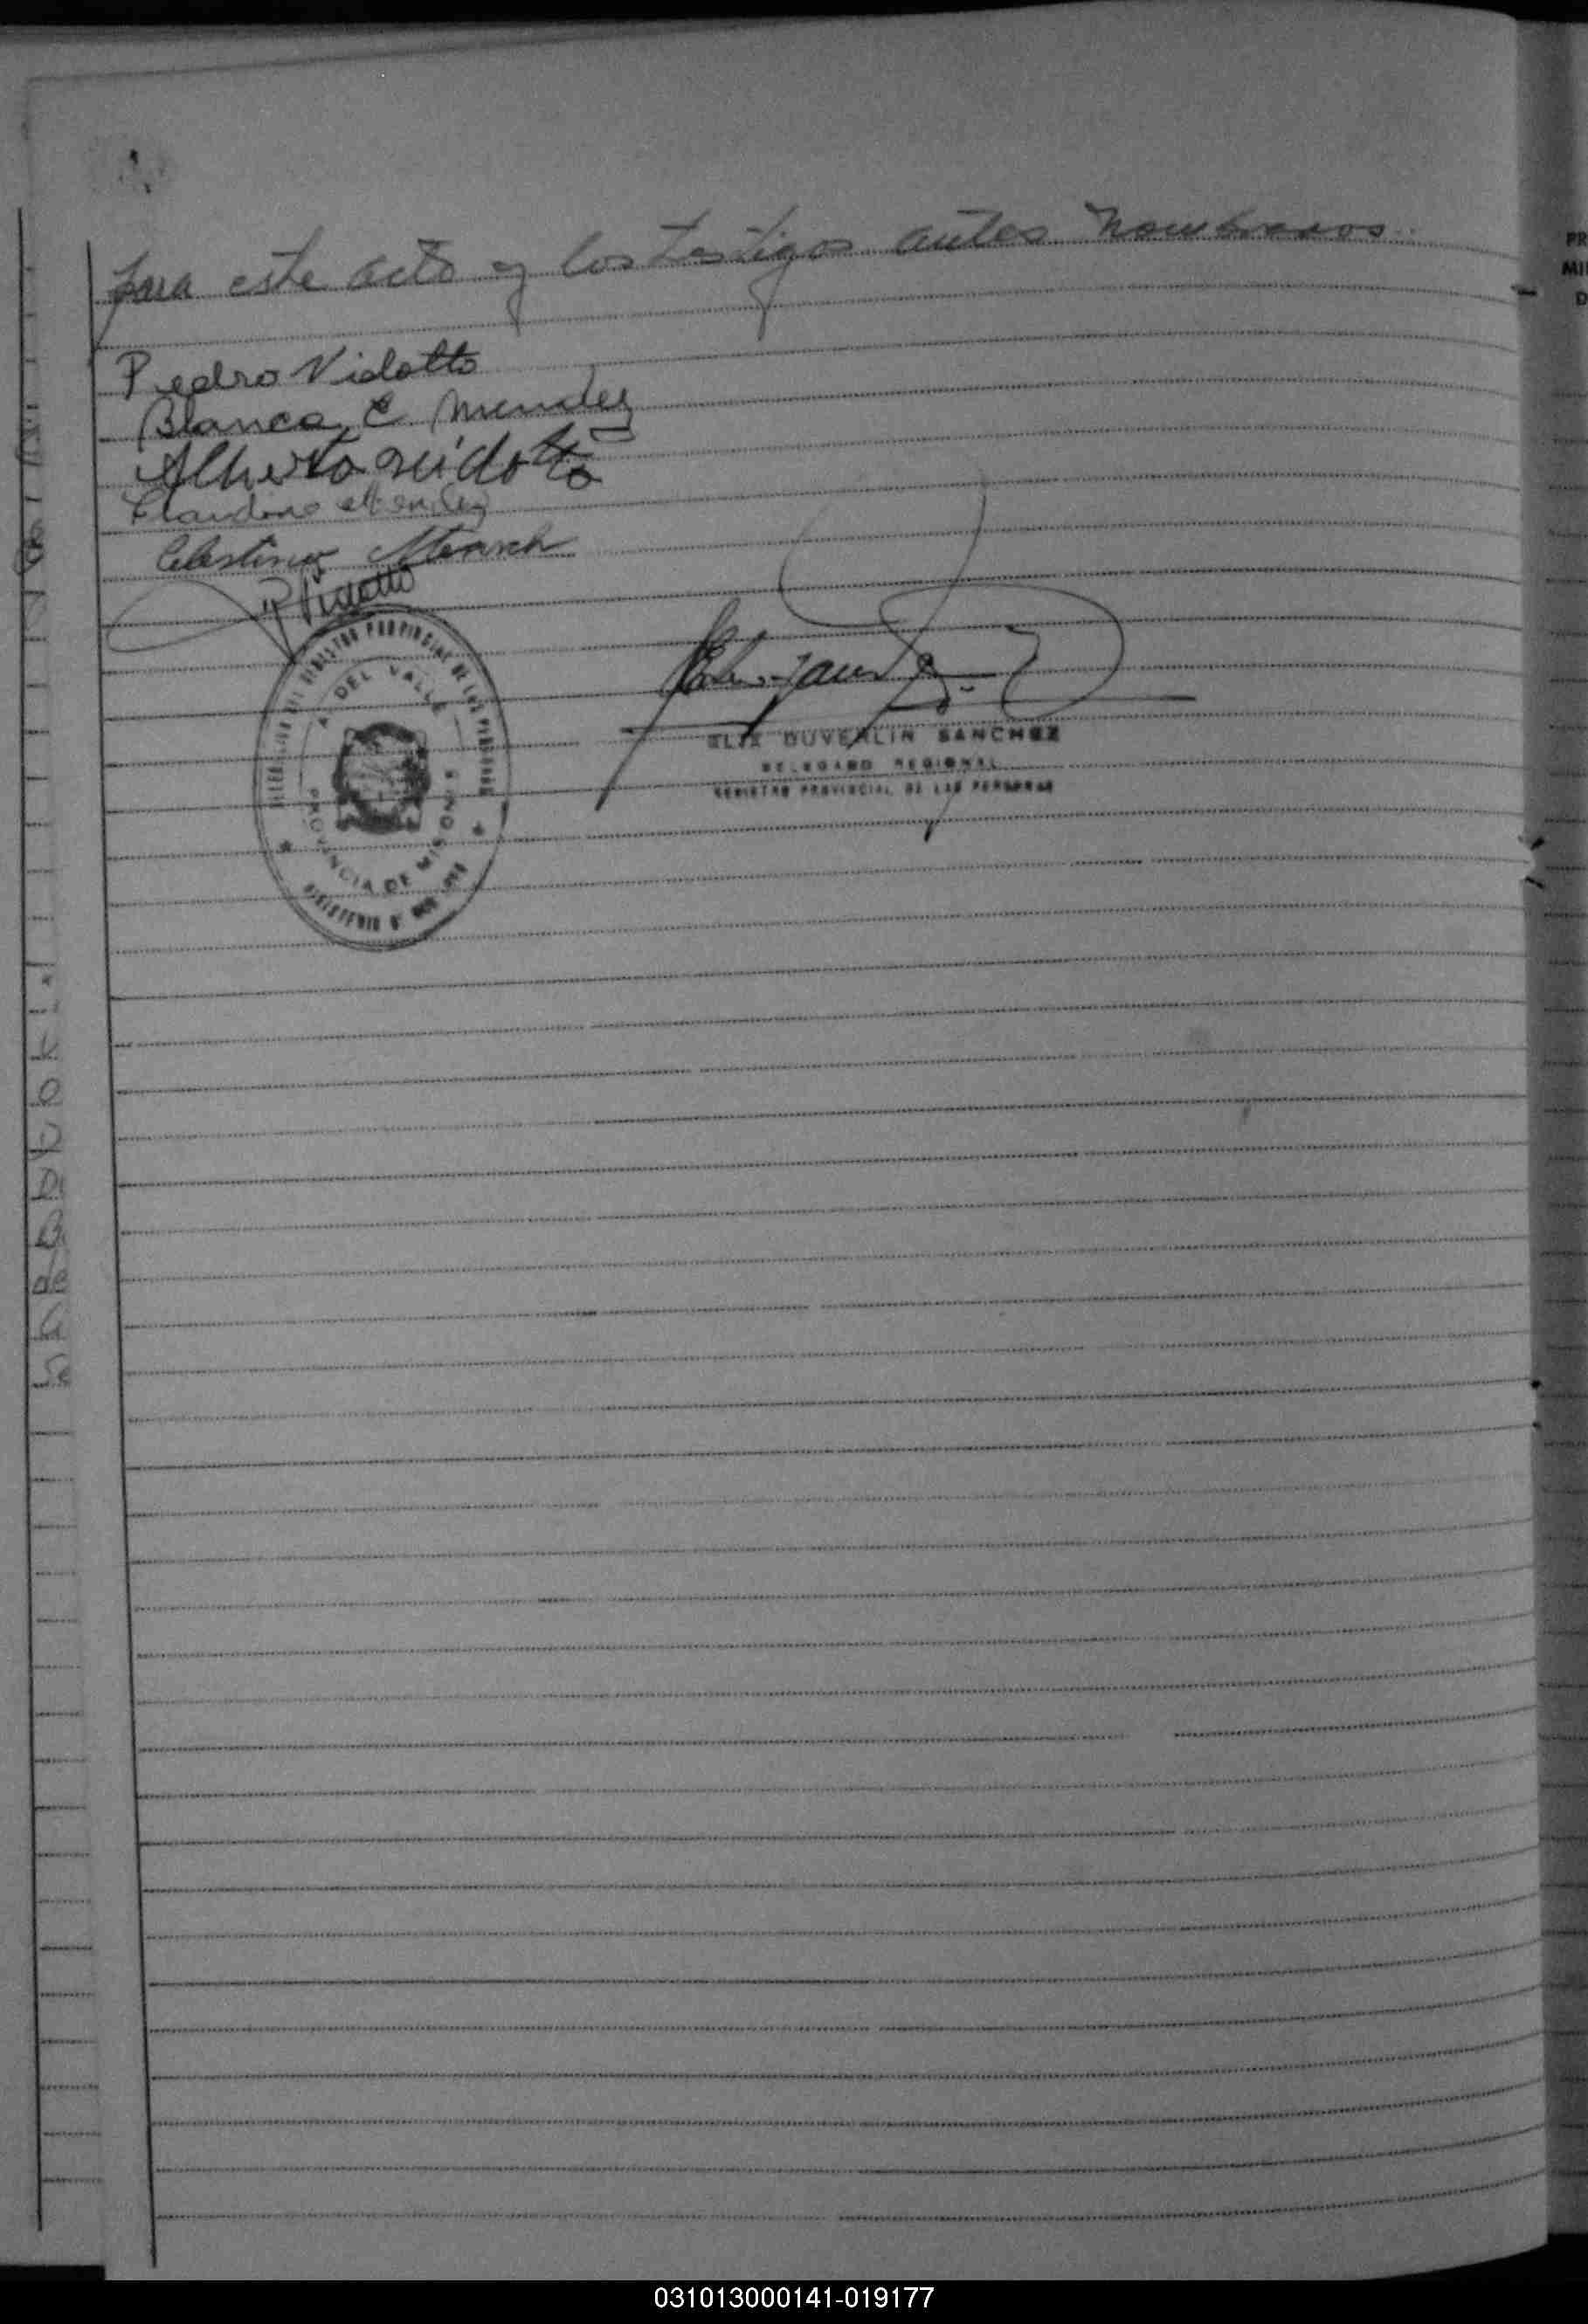 para este acto y los testigos antes nombrados.
Pedro Vidotto
Blanca C. Mendez
Alberto Vidotto
Claudino Mendez
Celestino
P Vidotto
REGISTRO PROVINCIAL DE LAS PERSONAS
A. DEL VALLE
PROVINCIA DE MISIONES
MINISTERIO DE
DUVERLIN SANCHEZ
DELEGADO REGIONAL
REGISTRO PROVINCIAL DE LAS PERSONAS
PR
MI
D
V
O
D
D
B
de
C
Se
031013000141-019177